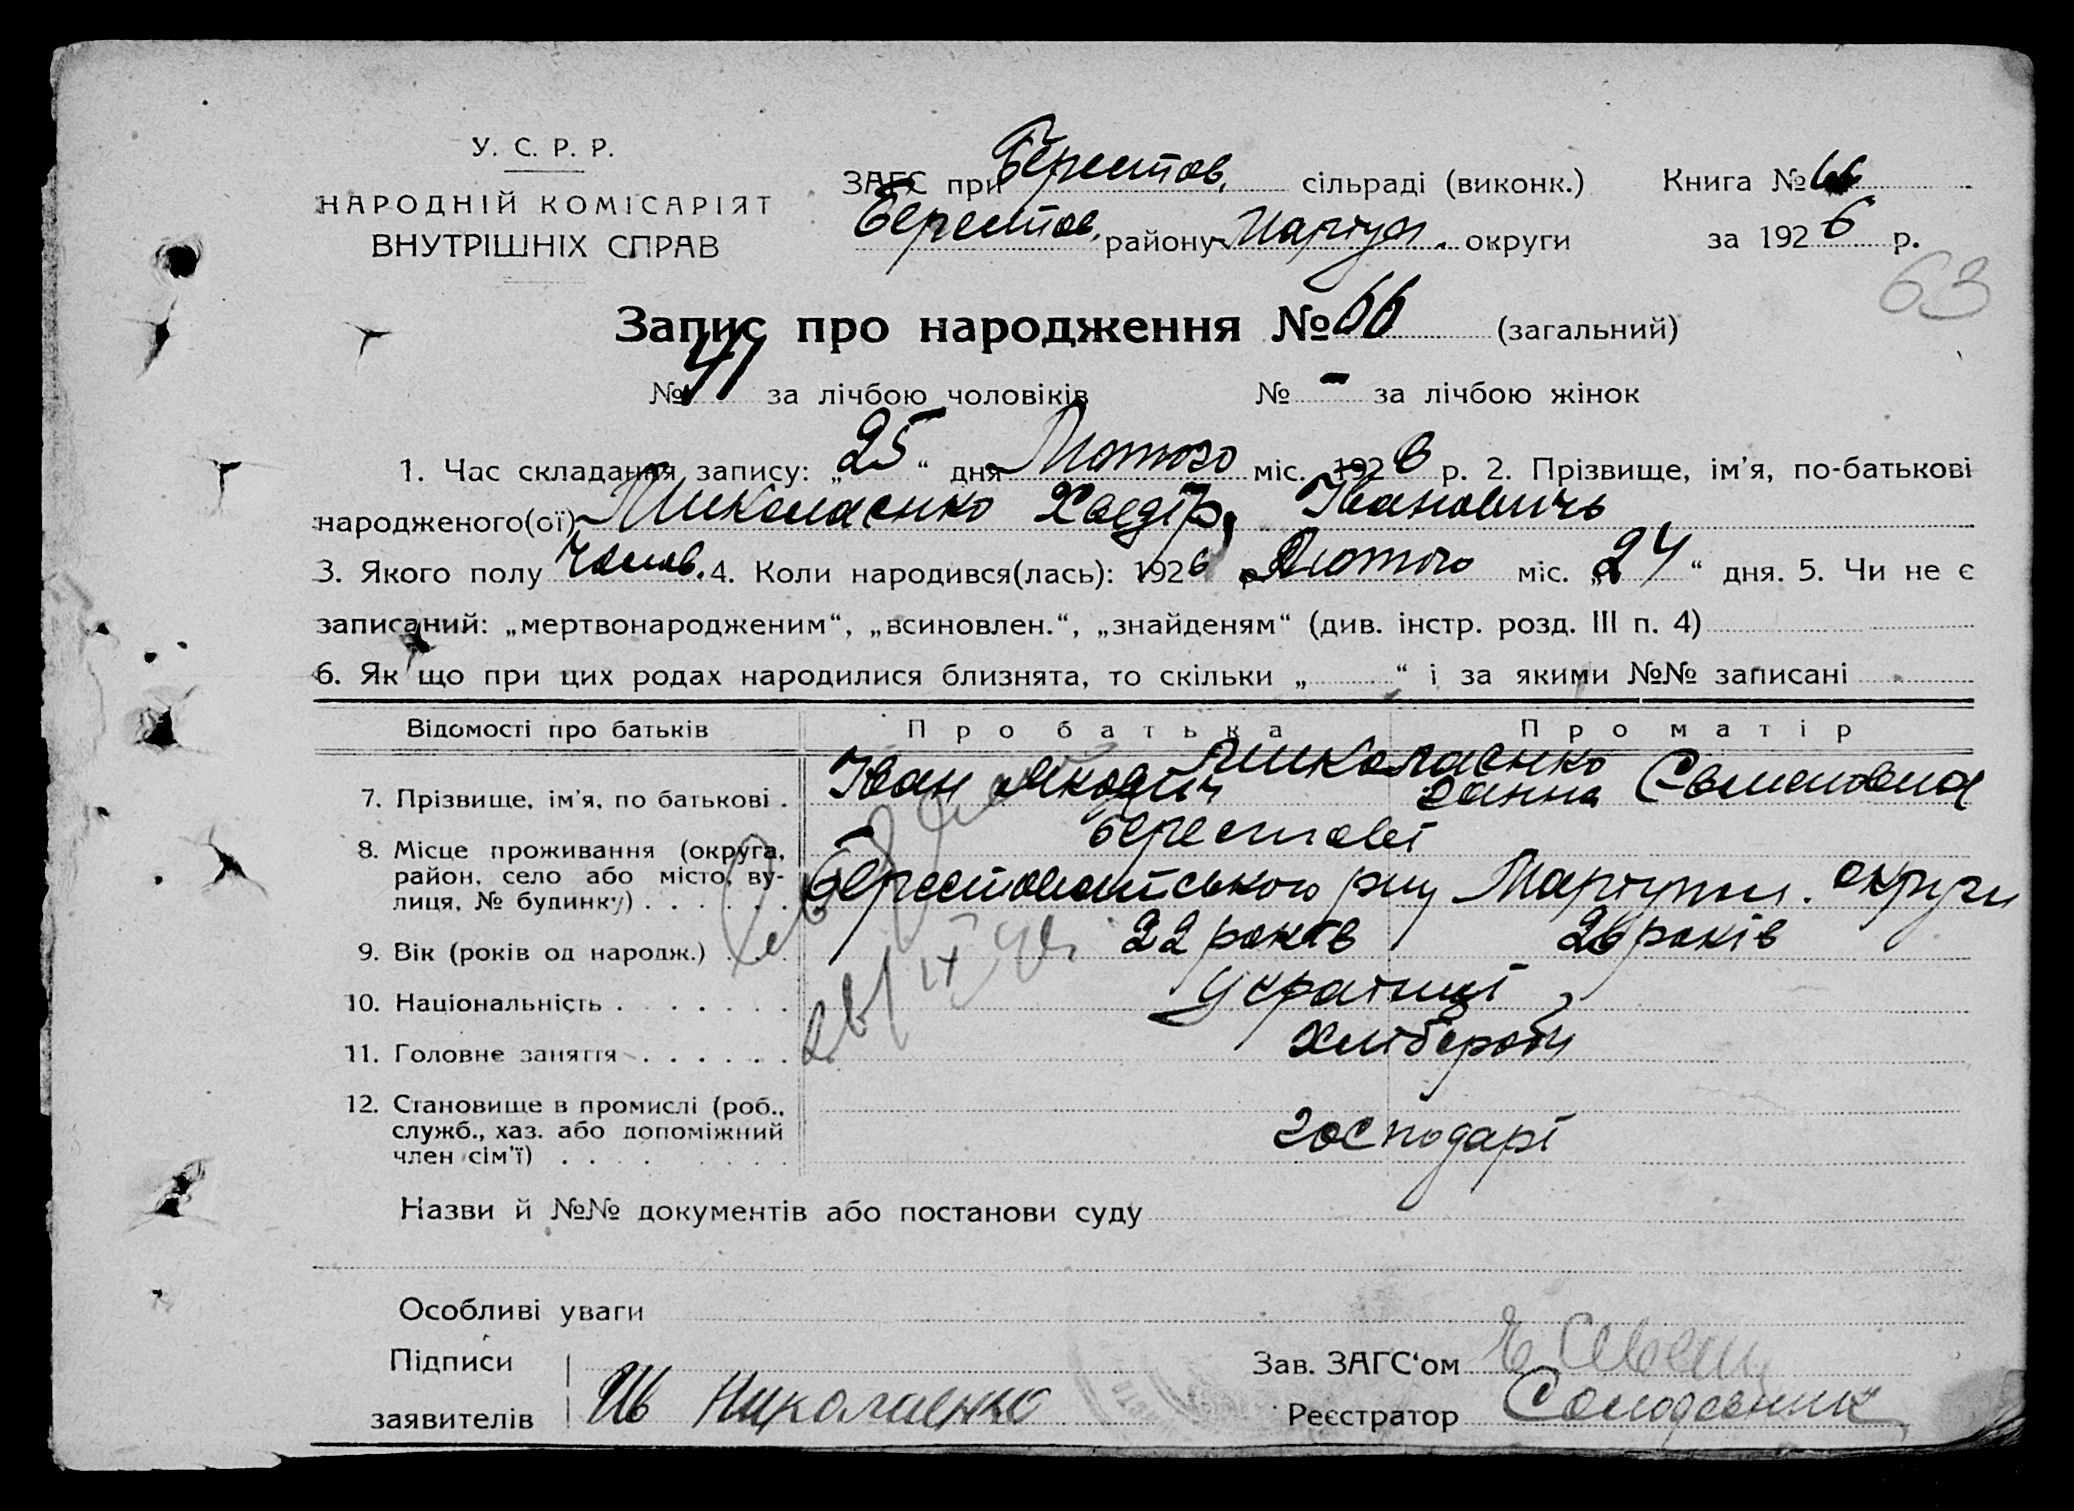 У. С. Р. Р.
НАРОДНІЙ КОМІСАРІЯТ
ВНУТРІШНІХ СПРАВ
ЗАГС при Берестов. сільраді (виконк.) Книга № 66
Берестов. району Маріуп. округи за 1926 р.
63
Запис про народження № 66 (загальний)
№ 41 за лічбою чоловіків № - за лічбою жінок
1. Час складання запису: „25“ дня Лютого міс. 1926 р. 2. Прізвище, ім'я, по-батькові
народженого(ої) Миколаєнко Хведір, Івановичь
3. Якого полу Чолов. 4. Коли народився(лась): 1926 р. Лютого міс. „24“ дня. 5. Чи не є
записаний: „мертвонародженим“, „всиновлен.“, „знайденям“ (див. інстр. розд. III п. 4)
6. Як що при цих родах народилися близнята, то скільки „ “ і за якими №№ записані
Відомості про батьків Про батька Про матір
Миколаєнко
7. Прізвище, ім'я, по батькові . Іван Ганна Семеновна
8. Місце проживання (округа,
район, село або місто, ву-
лиця, № будинку) . . . . . . Берестоватського р-ну Маріупил. округи
9. Вік (років од народж.) . . . . 22 років 26 років
10. Національність . . . . . . . Українці
11. Головне заняття . . . . . . Хлібороби
12. Становище в промислі (роб.,
служб., хаз. або допоміжний
член сім'ї) . . . . . . . господарі
Назви й №№ документів або постанови суду
Особливі уваги
Підписи Зав. ЗАГС'ом
заявителів Ив Николаенко Реєстратор Солодовник